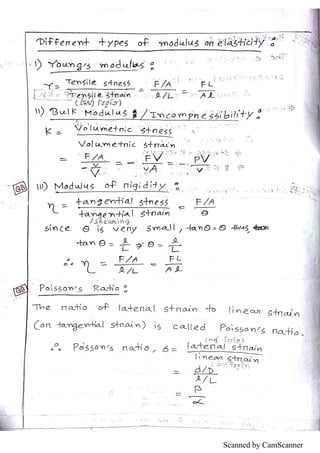 Different types of modulus on elasticity :
i) Young's modulus :
Y = Tensile stress / Tensile strain = F/A / l/L = FL / Al
ii) Bulk Modulus / Incompressibility :
K = Volumetric stress / Volumetric strain
= F/A / - v/V = - FV / vA = - PV / v
iii) Modulus of rigidity :
η = tangential stress / tangential strain = F/A / θ
/ Shearing
since θ is very small, tanθ = θ thus,
tan θ = l/L , θ = l/L
∴ η = F/A / l/L = FL / Al
Poisson's Ratio :
The ratio of lateral strain to linear strain
(or tangential strain) is called Poisson's ratio.
∴ Poisson's ratio, σ = lateral strain / linear strain
= d/D / l/L
= β / α
Scanned by CamScanner